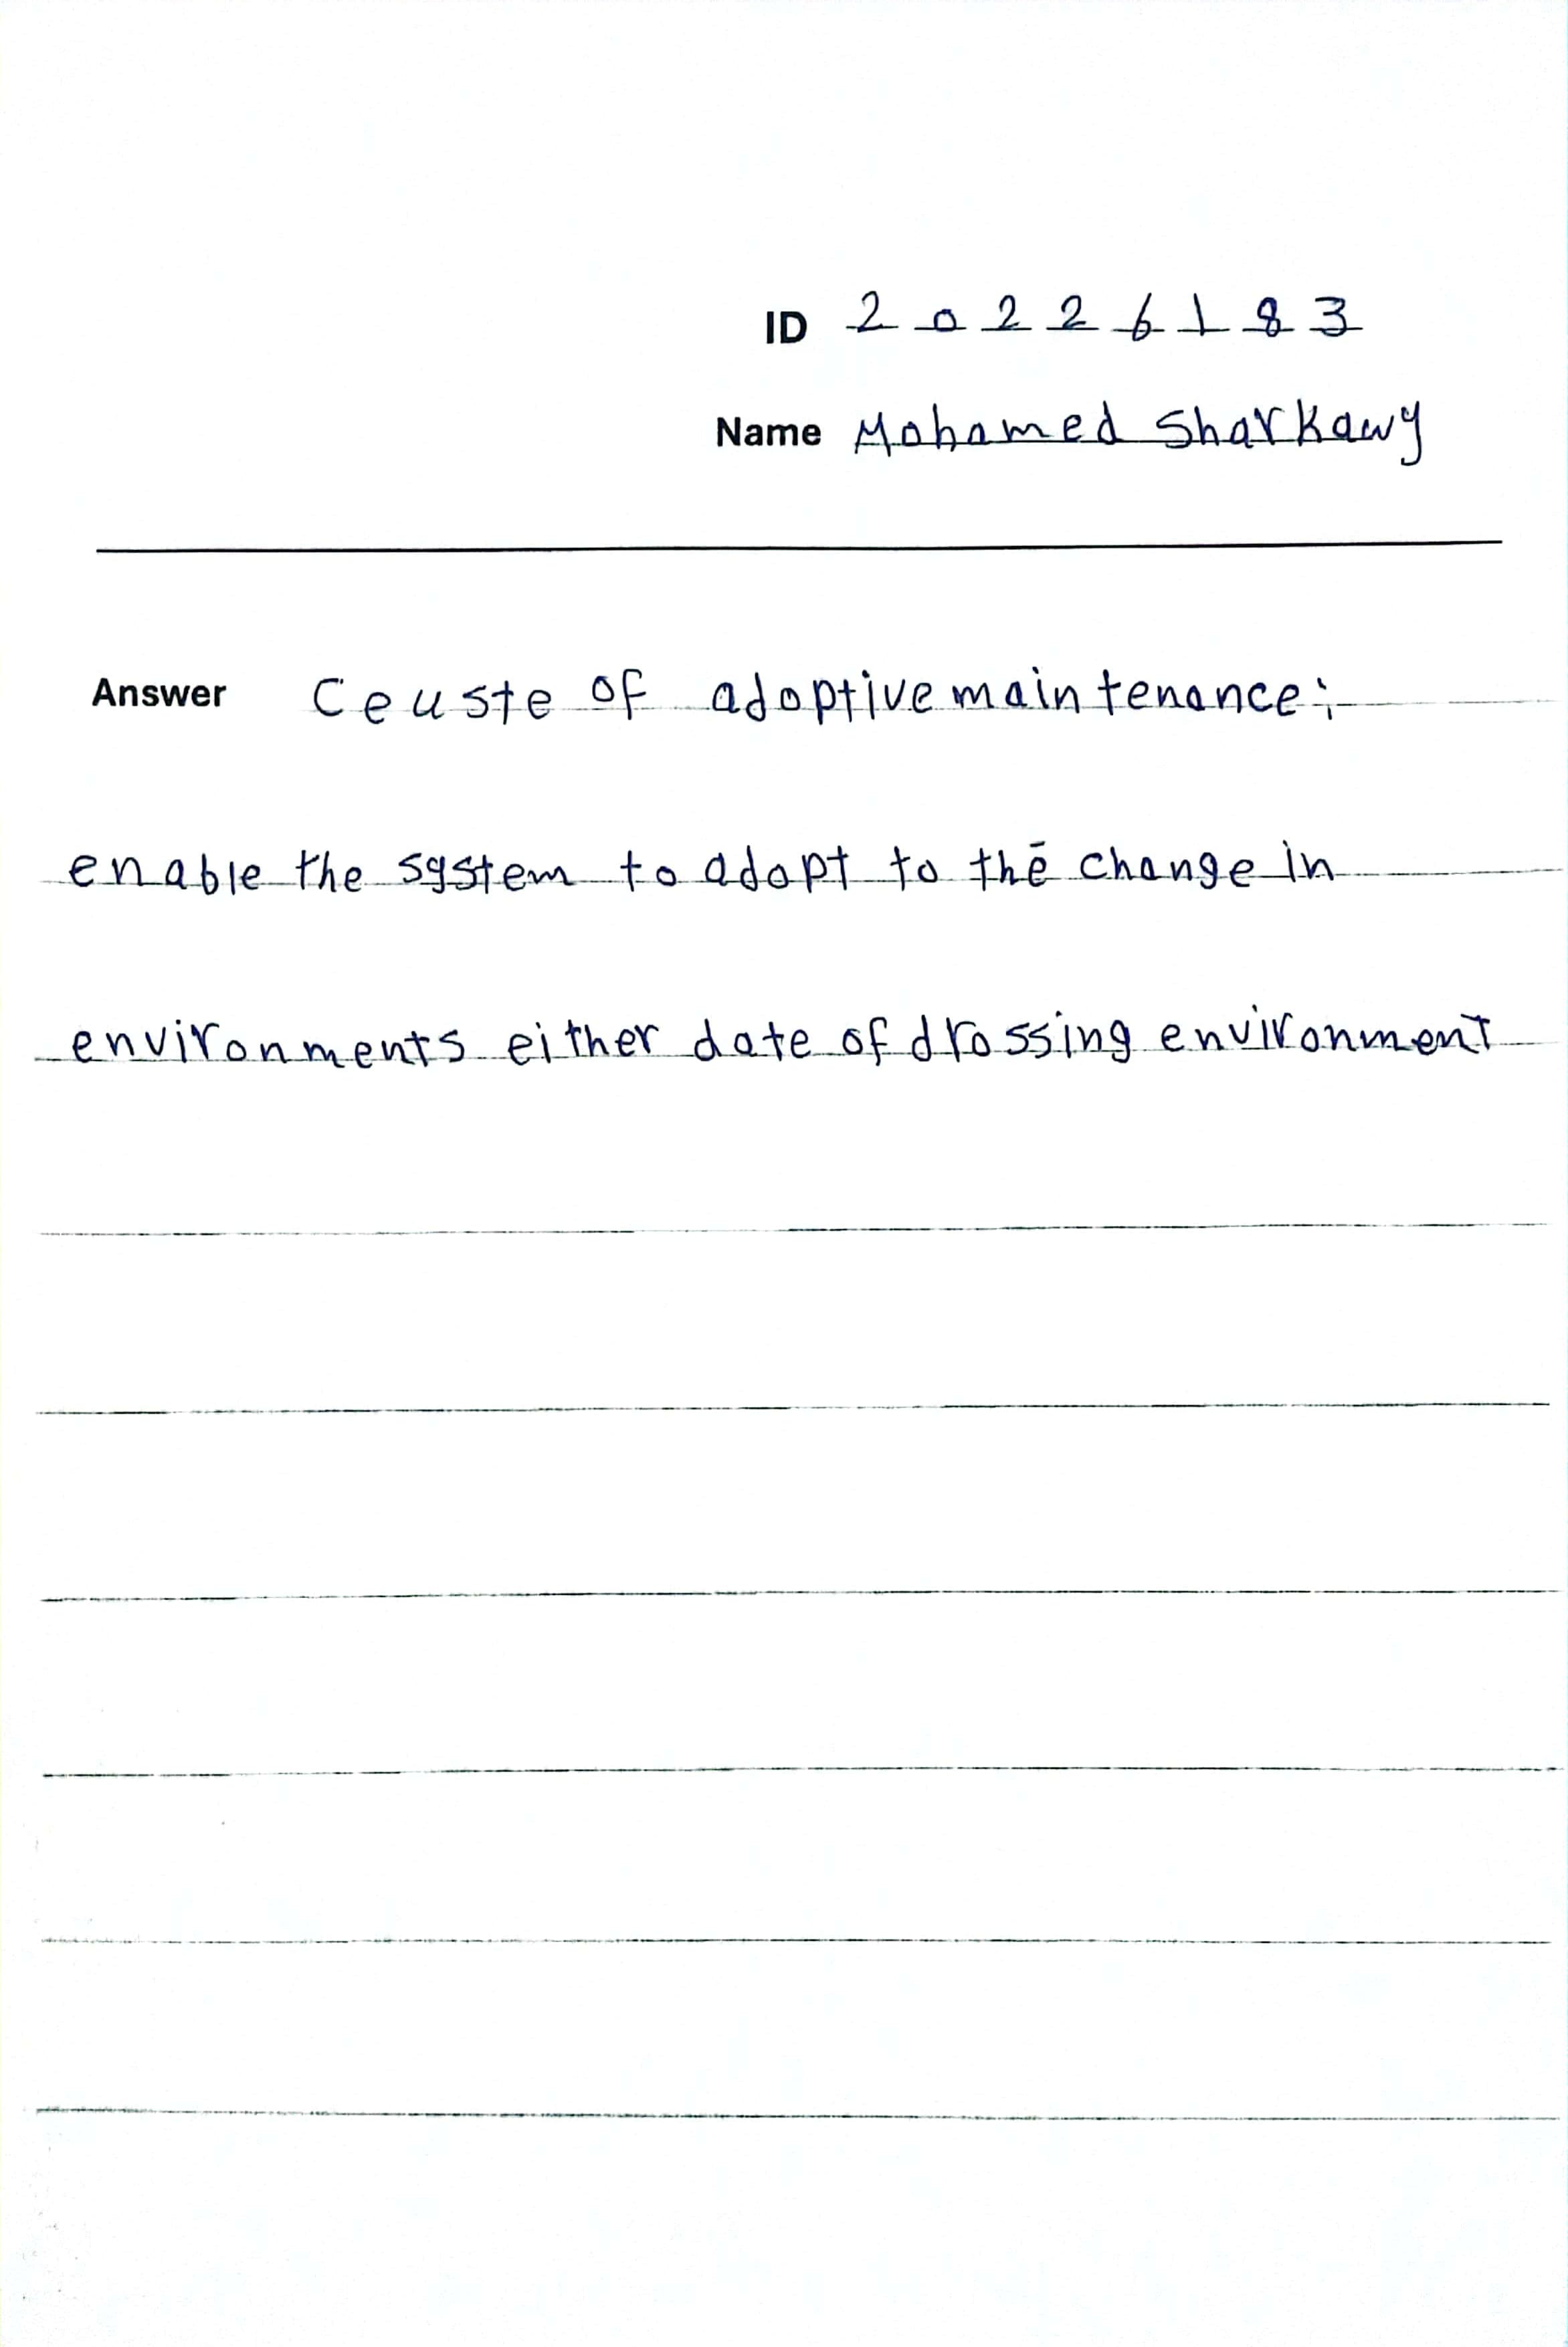 ID 20226183
Name Mohamed Sharkawy
Answer Ceuste of adoptive maintenance:
enable the system to adopt to the change in
environments either date of drossing environment